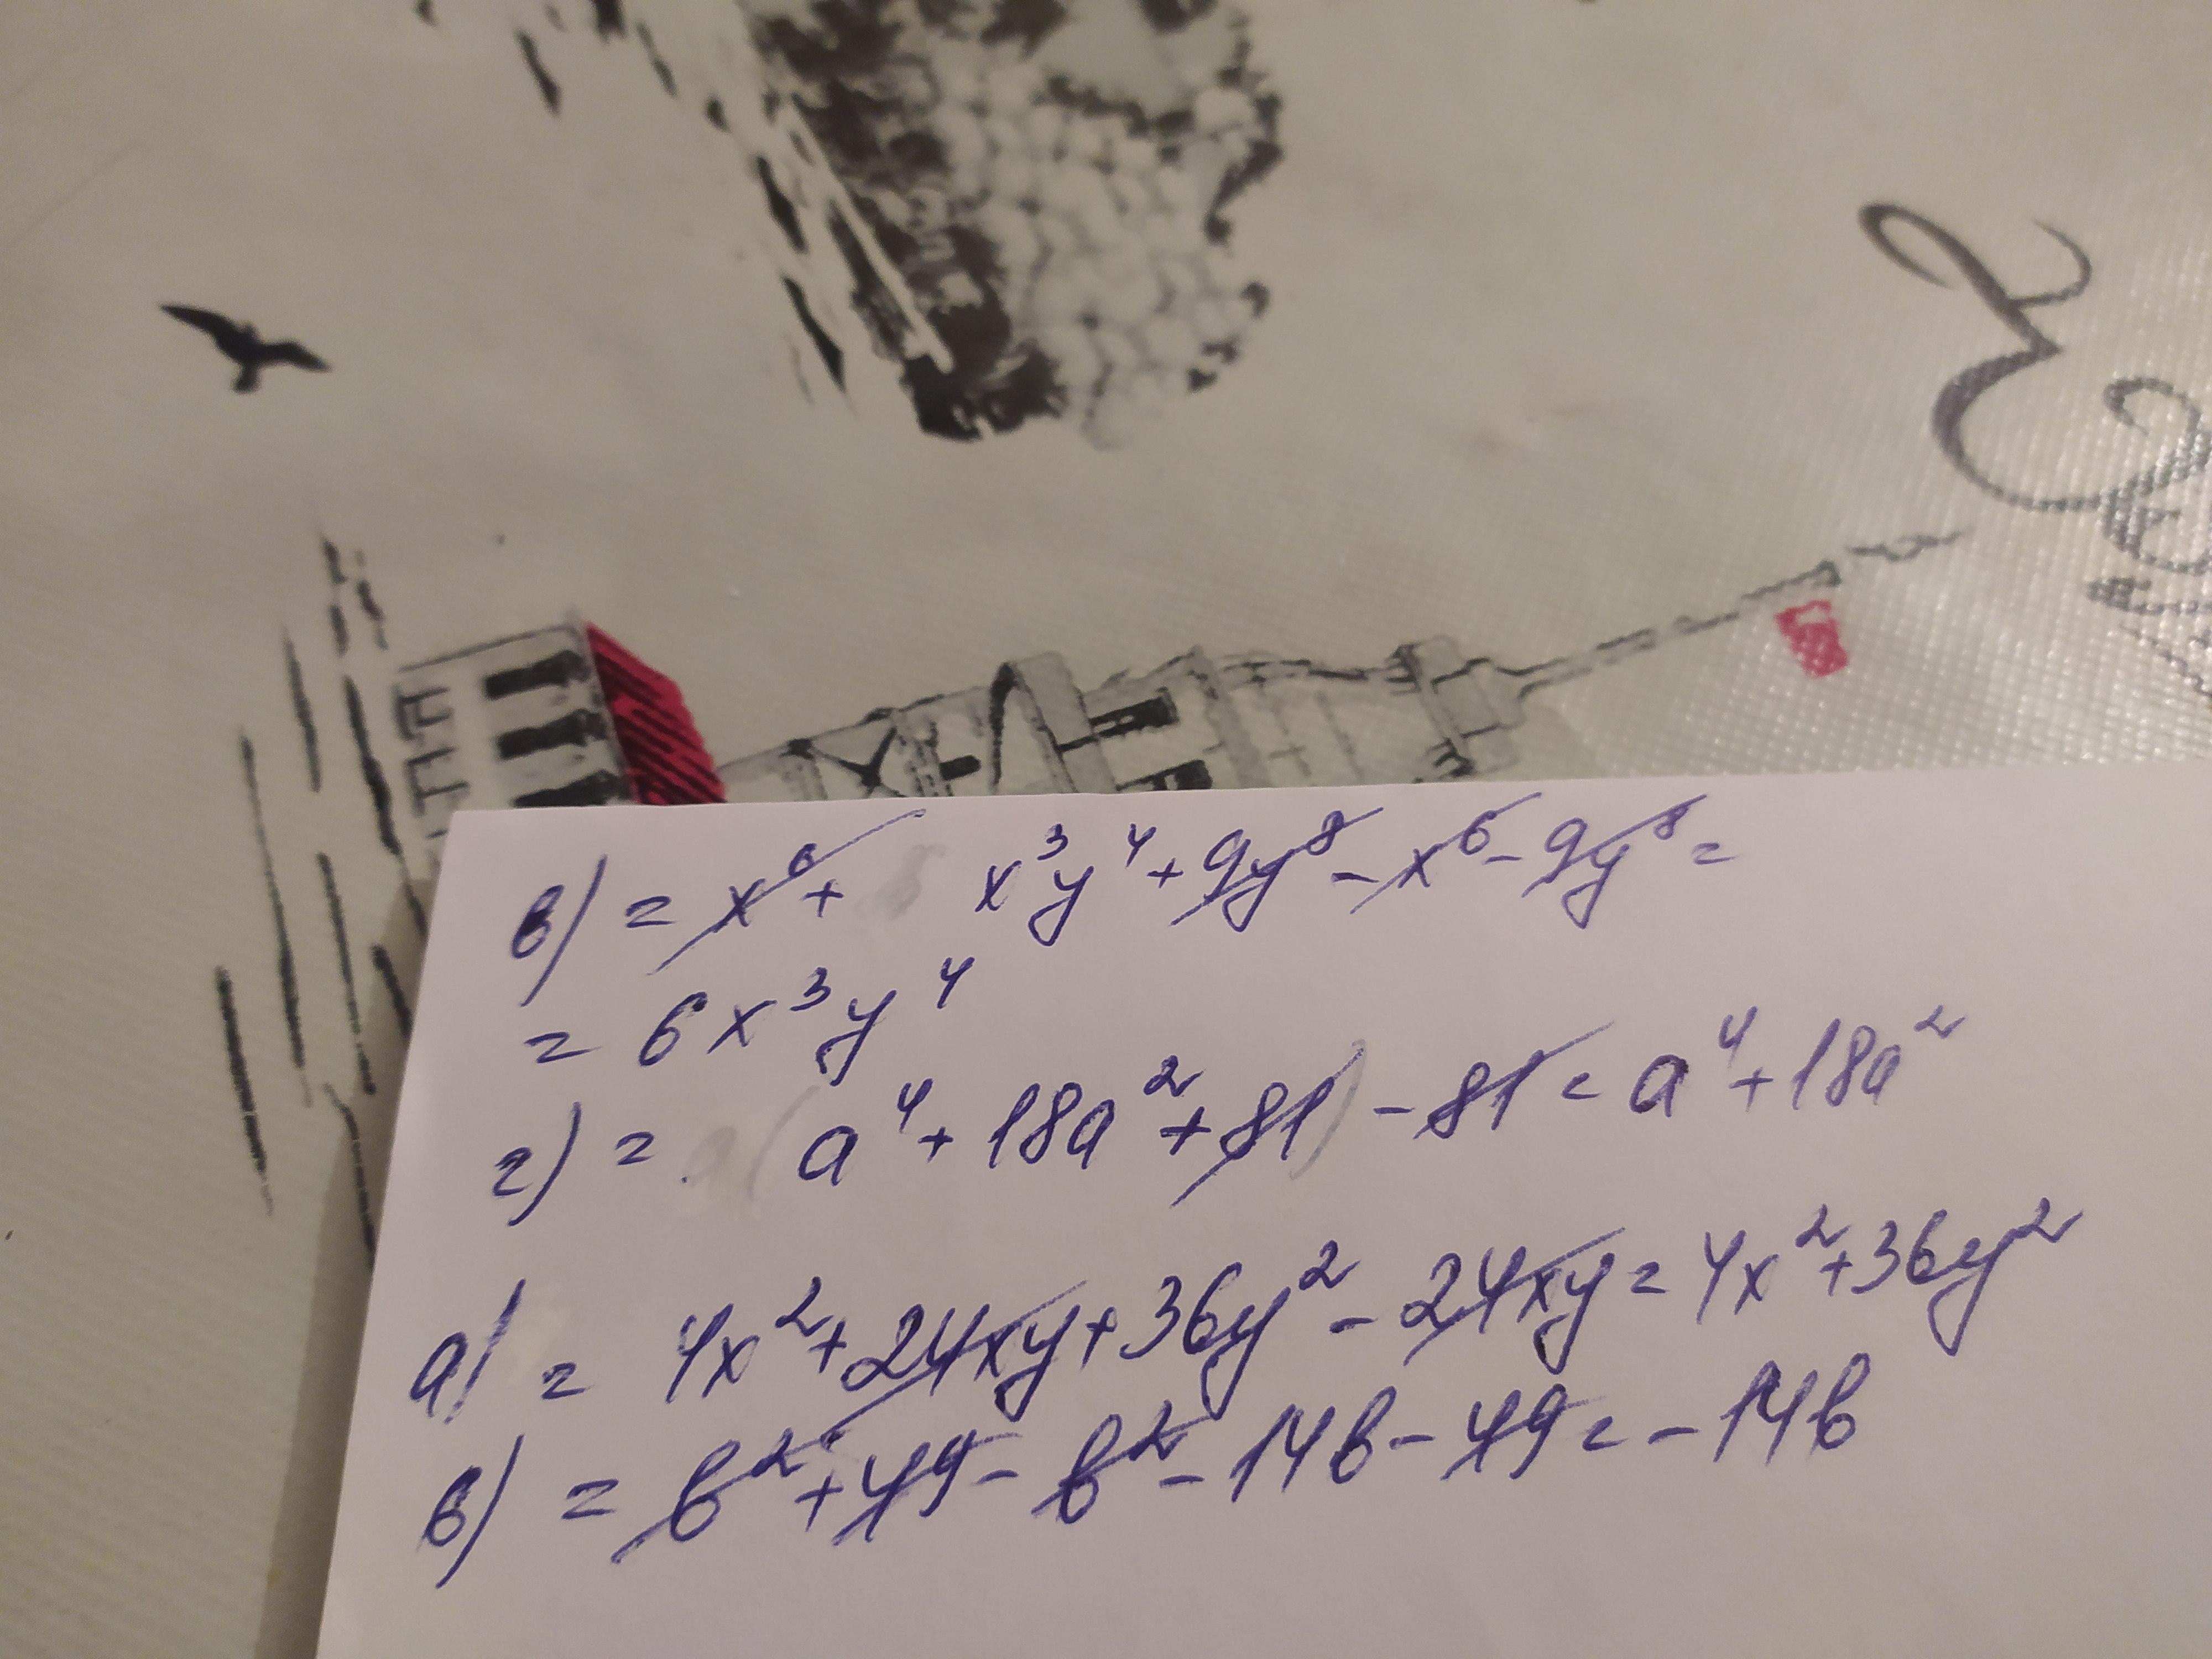 в) = x⁶ + x³y⁴ + 9y⁸ - x⁶ - 9y⁸ =
= 6x³y⁴
г) = (a⁴ + 18a² + 81) - 81 = a⁴ + 18a²
а) = 4x² + 24xy + 36y² - 24xy = 4x² + 36y²
в) = b² + 49 - b² - 14b - 49 = - 14b